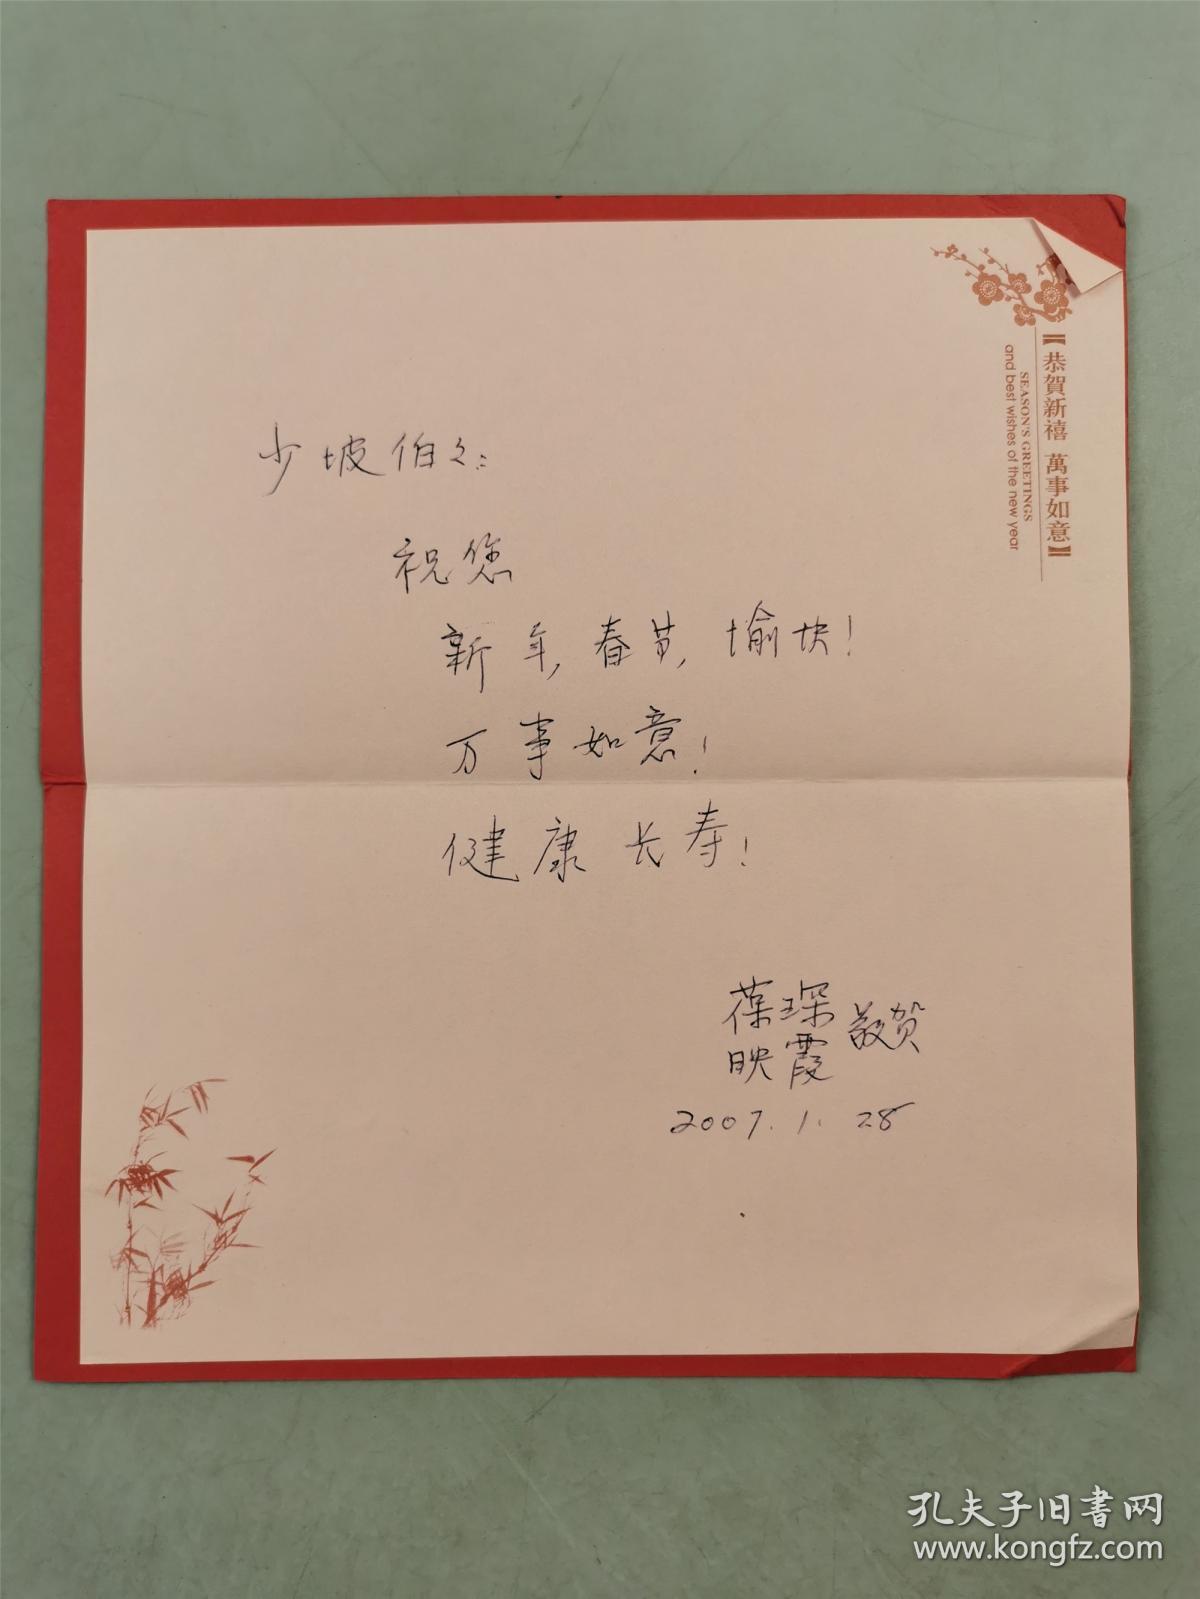 【恭賀新禧 萬事如意】
SEASON'S GREETINGS
and best wishes of the new year
少坡伯々:
祝您
新年,春节,愉快!
万事如意!
健康长寿!
葆琛
映霞 敬贺
2007.1.28
孔夫子旧书网
www.kongfz.com